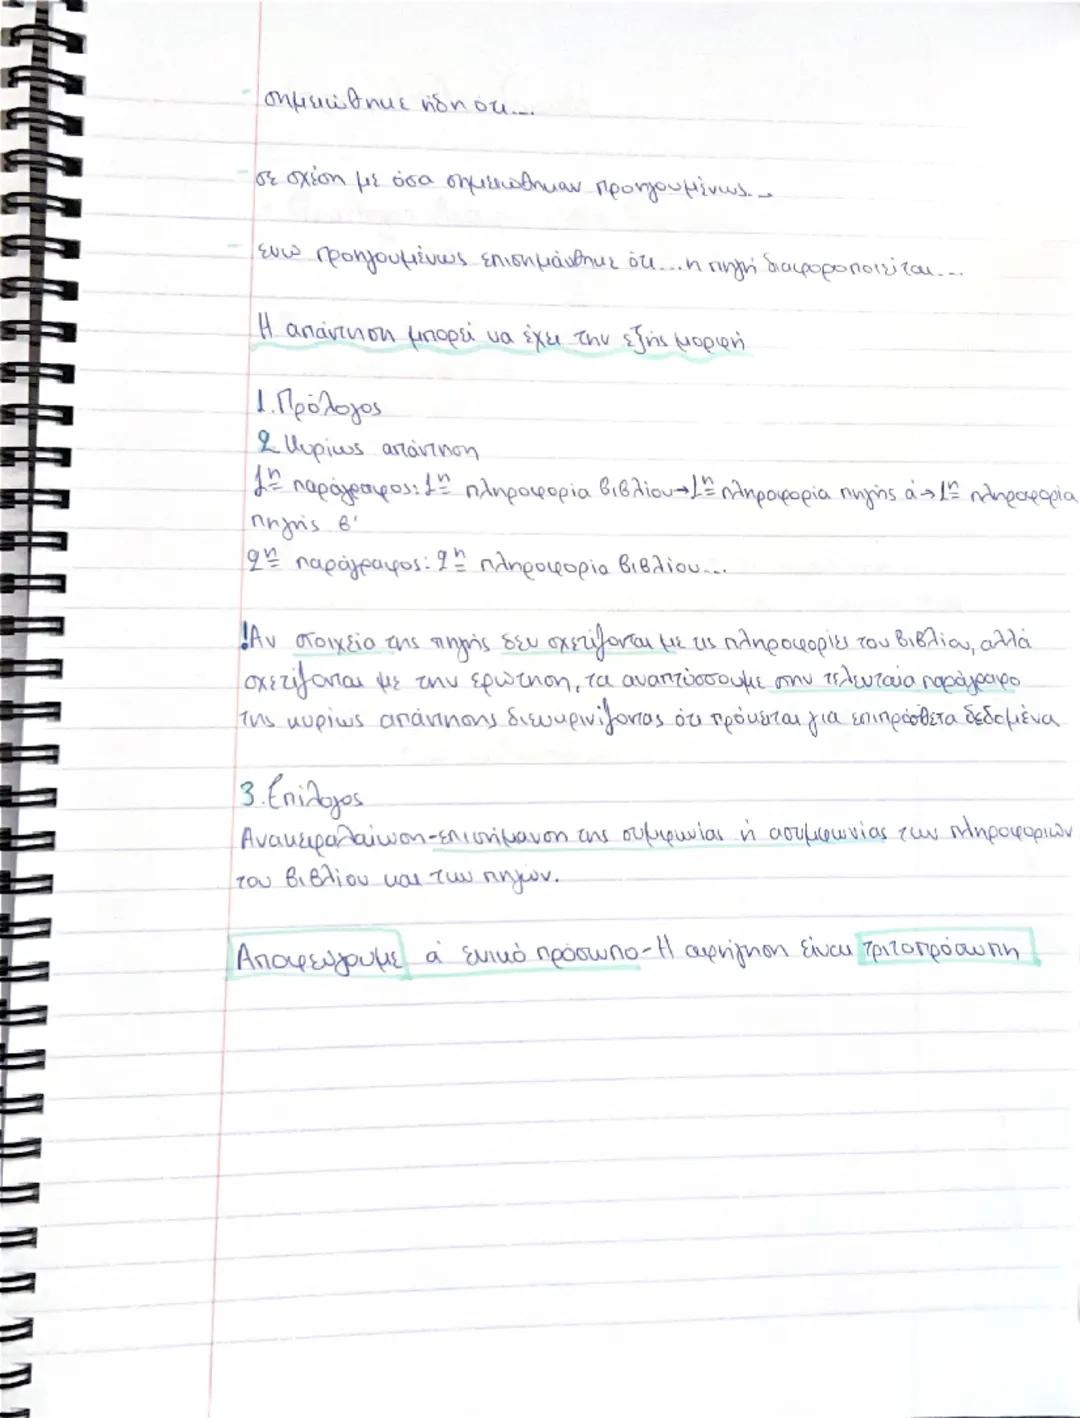 - σημειώθηκε ήδη ότι....
- σε σχέση με όσα σημειώθηκαν προηγουμένως...
- ενώ προηγουμένως επισημάνθηκε ότι...η πηγή διαφοροποιείται....
Η απάντηση μπορεί να έχει την εξής μορφή
1.Πρόλογος
2 Κυρίως απάντηση
1η παράγραφος: 1η πληροφορία βιβλίου→1η πληροφορία πηγής ά→1η πληροφορία
πηγής β'
2η παράγραφος: 2η πληροφορία βιβλίου...
!Αν στοιχεία της πηγής δεν σχετίζονται με τις πληροφορίες του βιβλίου, αλλά
σχετίζονται με την ερώτηση, τα αναπτύσσουμε στην τελευταία παράγραφο
της κυρίως απάντησης διευκρινίζοντας ότι πρόκειται για επιπρόσθετα δεδομένα
3.Επίλογος
Ανακεφαλαίωση-επισήμανση της συμφωνίας ή ασυμφωνίας των πληροφοριών
του βιβλίου και των πηγών.
Αποφεύγουμε ά ενικό πρόσωπο-Η αφήγηση είναι τριτοπρόσωπη